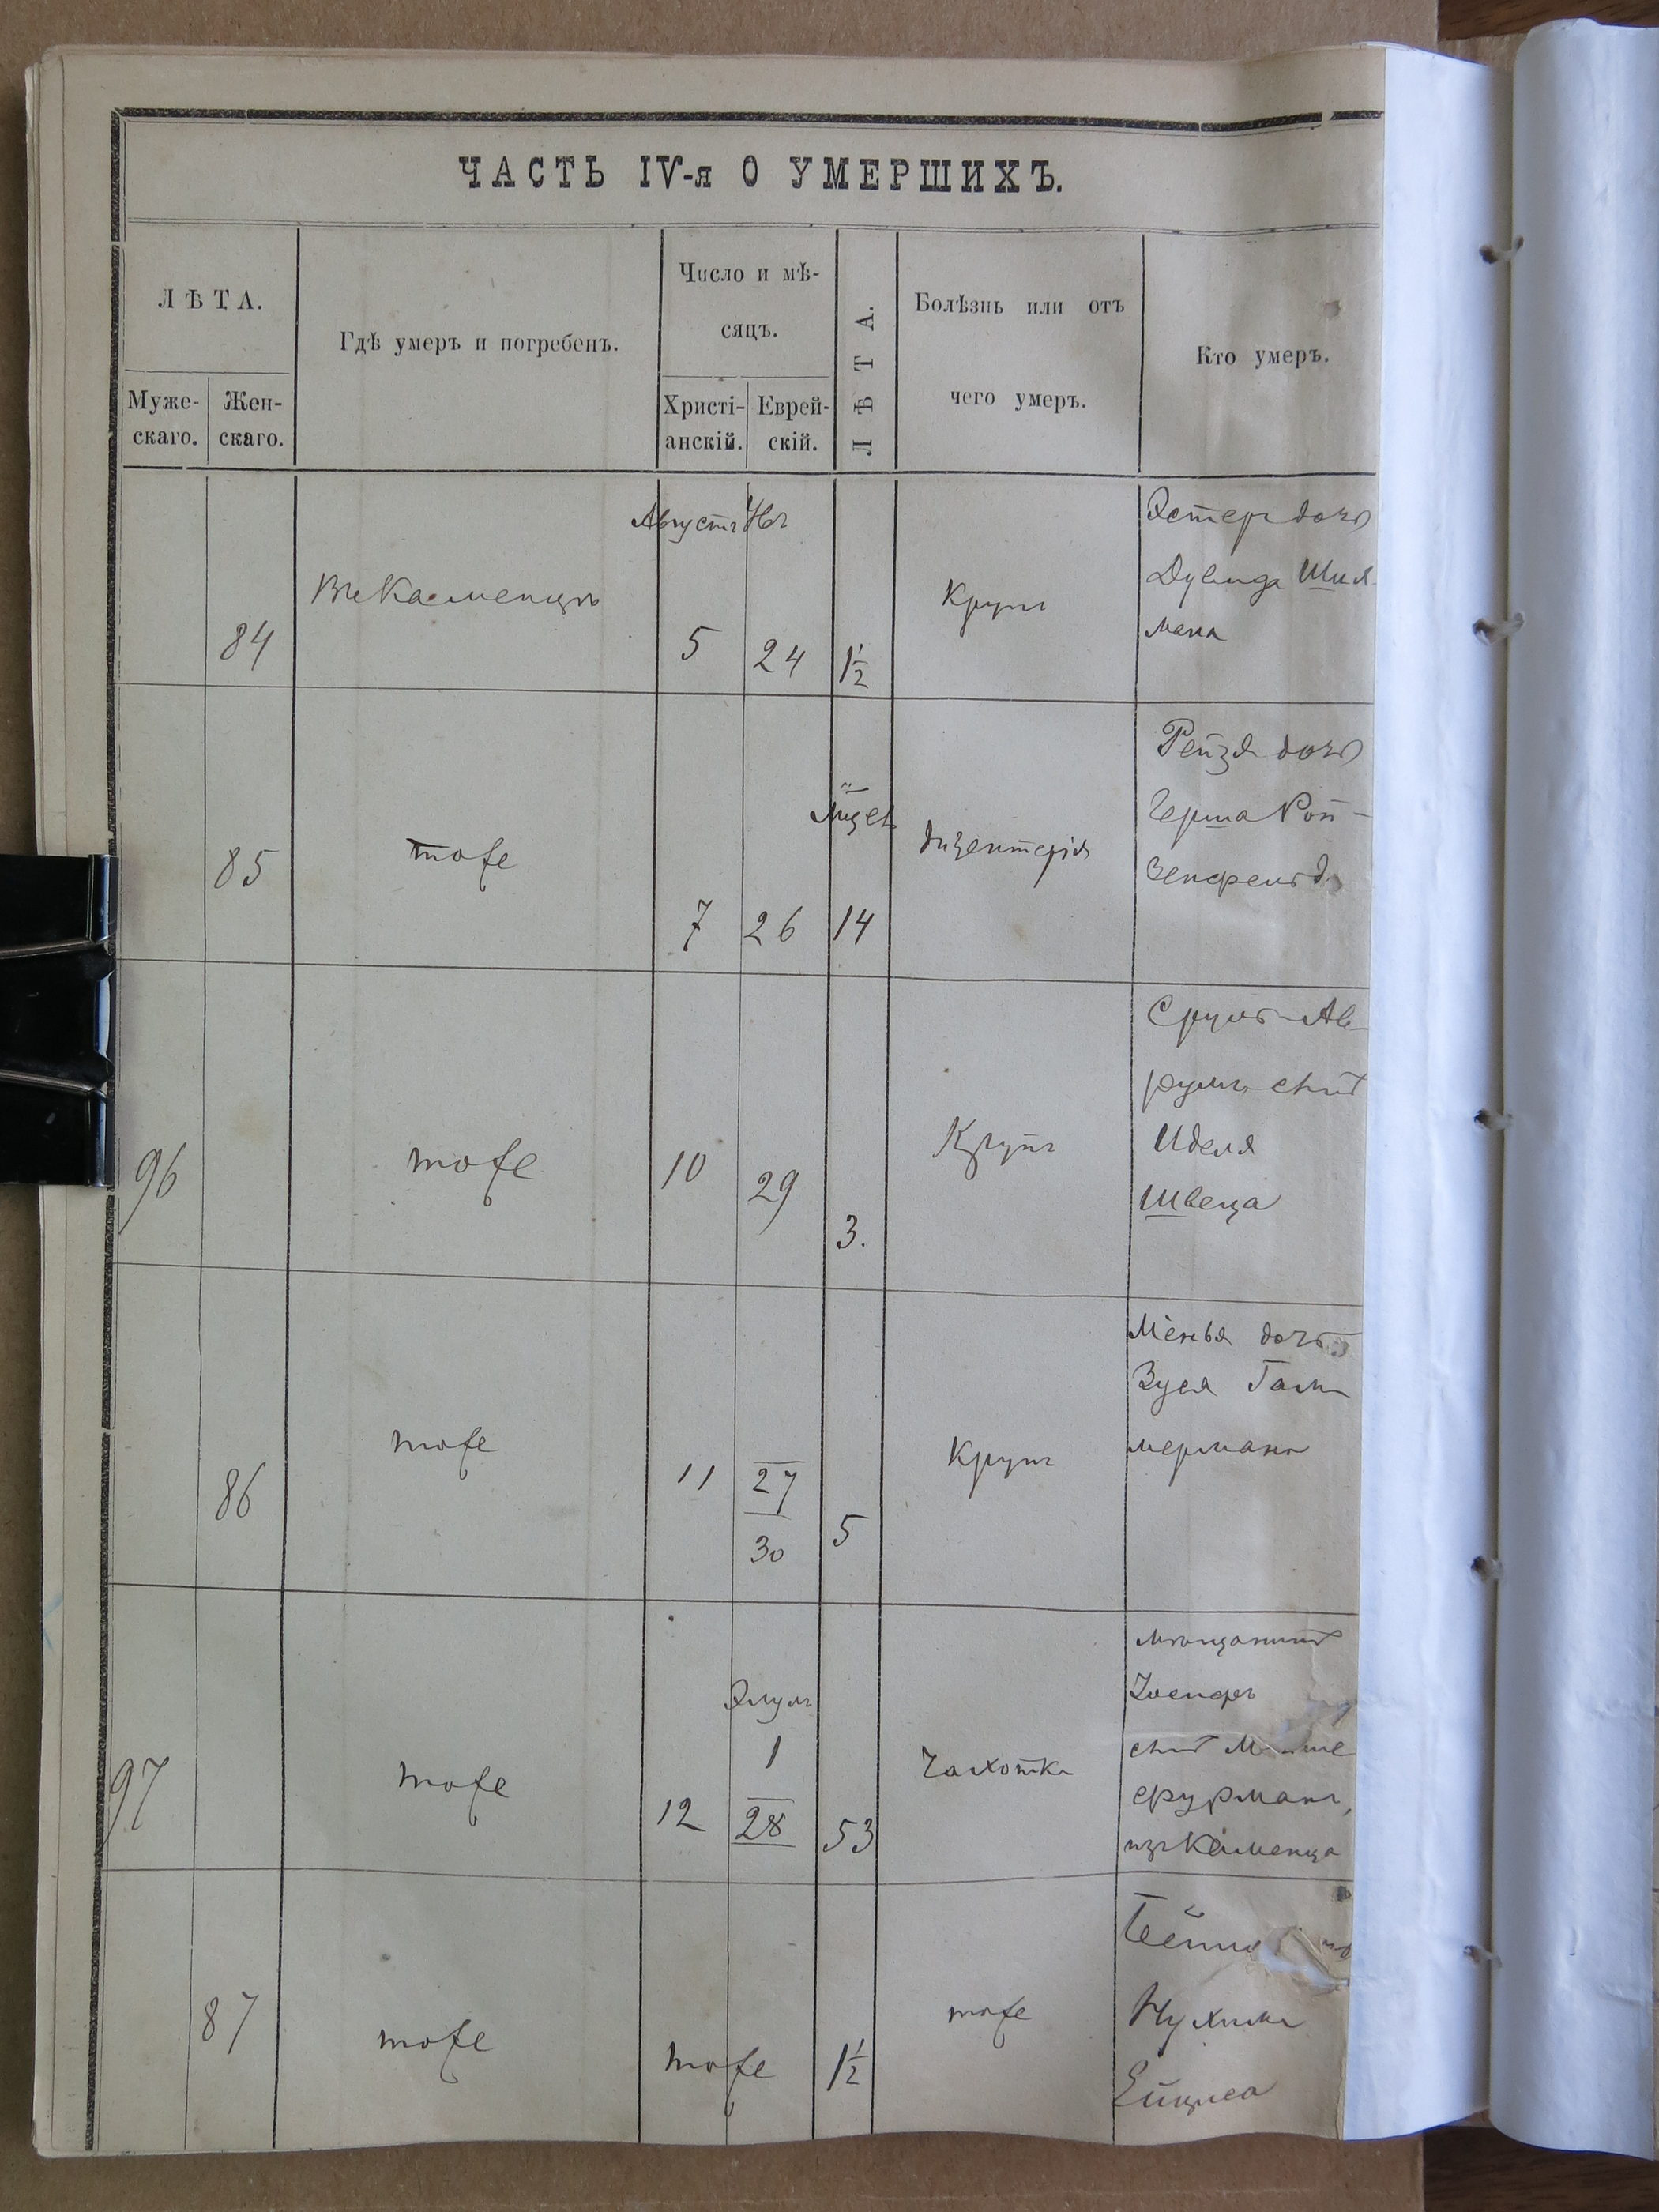 ЧАСТЬ IV-я О УМЕРШИХЪ.
ЛѢТА.
Муже-
скаго.
Жен-
скаго.
Гдѣ умеръ и погребенъ.
Число и мѣ-
сяцъ.
Христі-
анскій.
Еврей-
скій.
ЛѢТА.
Болѣзнь или отъ
чего умеръ.
Кто умеръ.
84
Въ Каменцѣ
Августъ
5
24
1½
Крупъ
Эстеръ дочь
Дувида Шил-
мана
85
тоже
7
26
14
дизентерія
Рейзя дочь
Герша Рой-
зенфельда
96
тоже
10
29
3.
Крупъ
Сруль-Ав-
румъ сынъ
Иделя
Швеца
86
тоже
11
27
30
5
Крупъ
Менья дочь
Зуся
мермана
97
тоже
12
Элулъ
1
28
53
Чахотка
мѣщанинъ
Iосифъ
сынъ
Фурманъ,
изъ Каменца
87
тоже
тоже
1½
тоже
Нухима